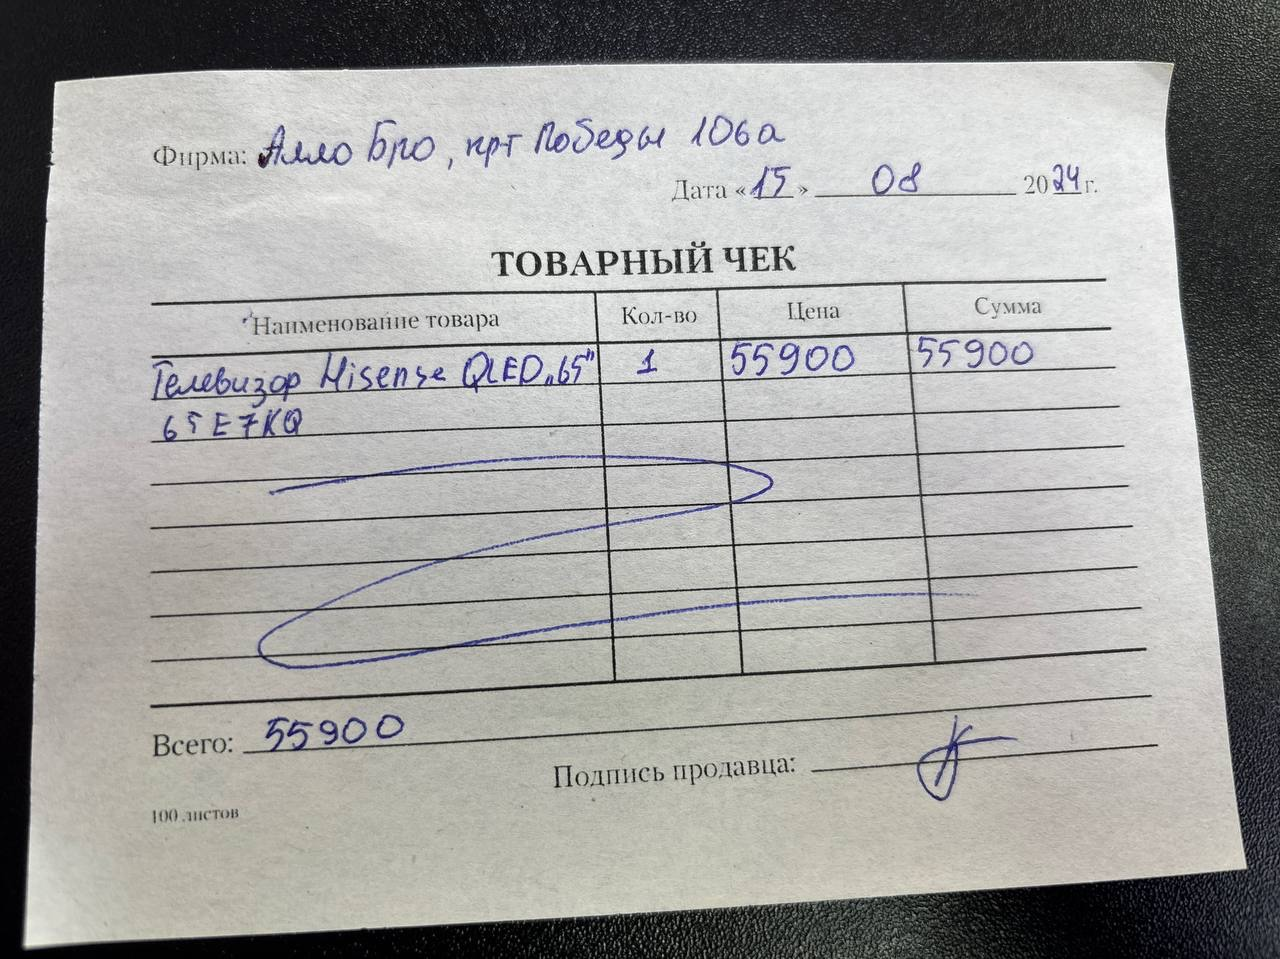 Фирма: Алло Бро, прт Победы 106а
Дата «15» 08 2024 г.
ТОВАРНЫЙ ЧЕК
Наименование товара Кол-во Цена Сумма
Телевизор Hisense QLED „65" 1 55900 55900
65E7KQ
Всего: 55900
Подпись продавца:
100 листов